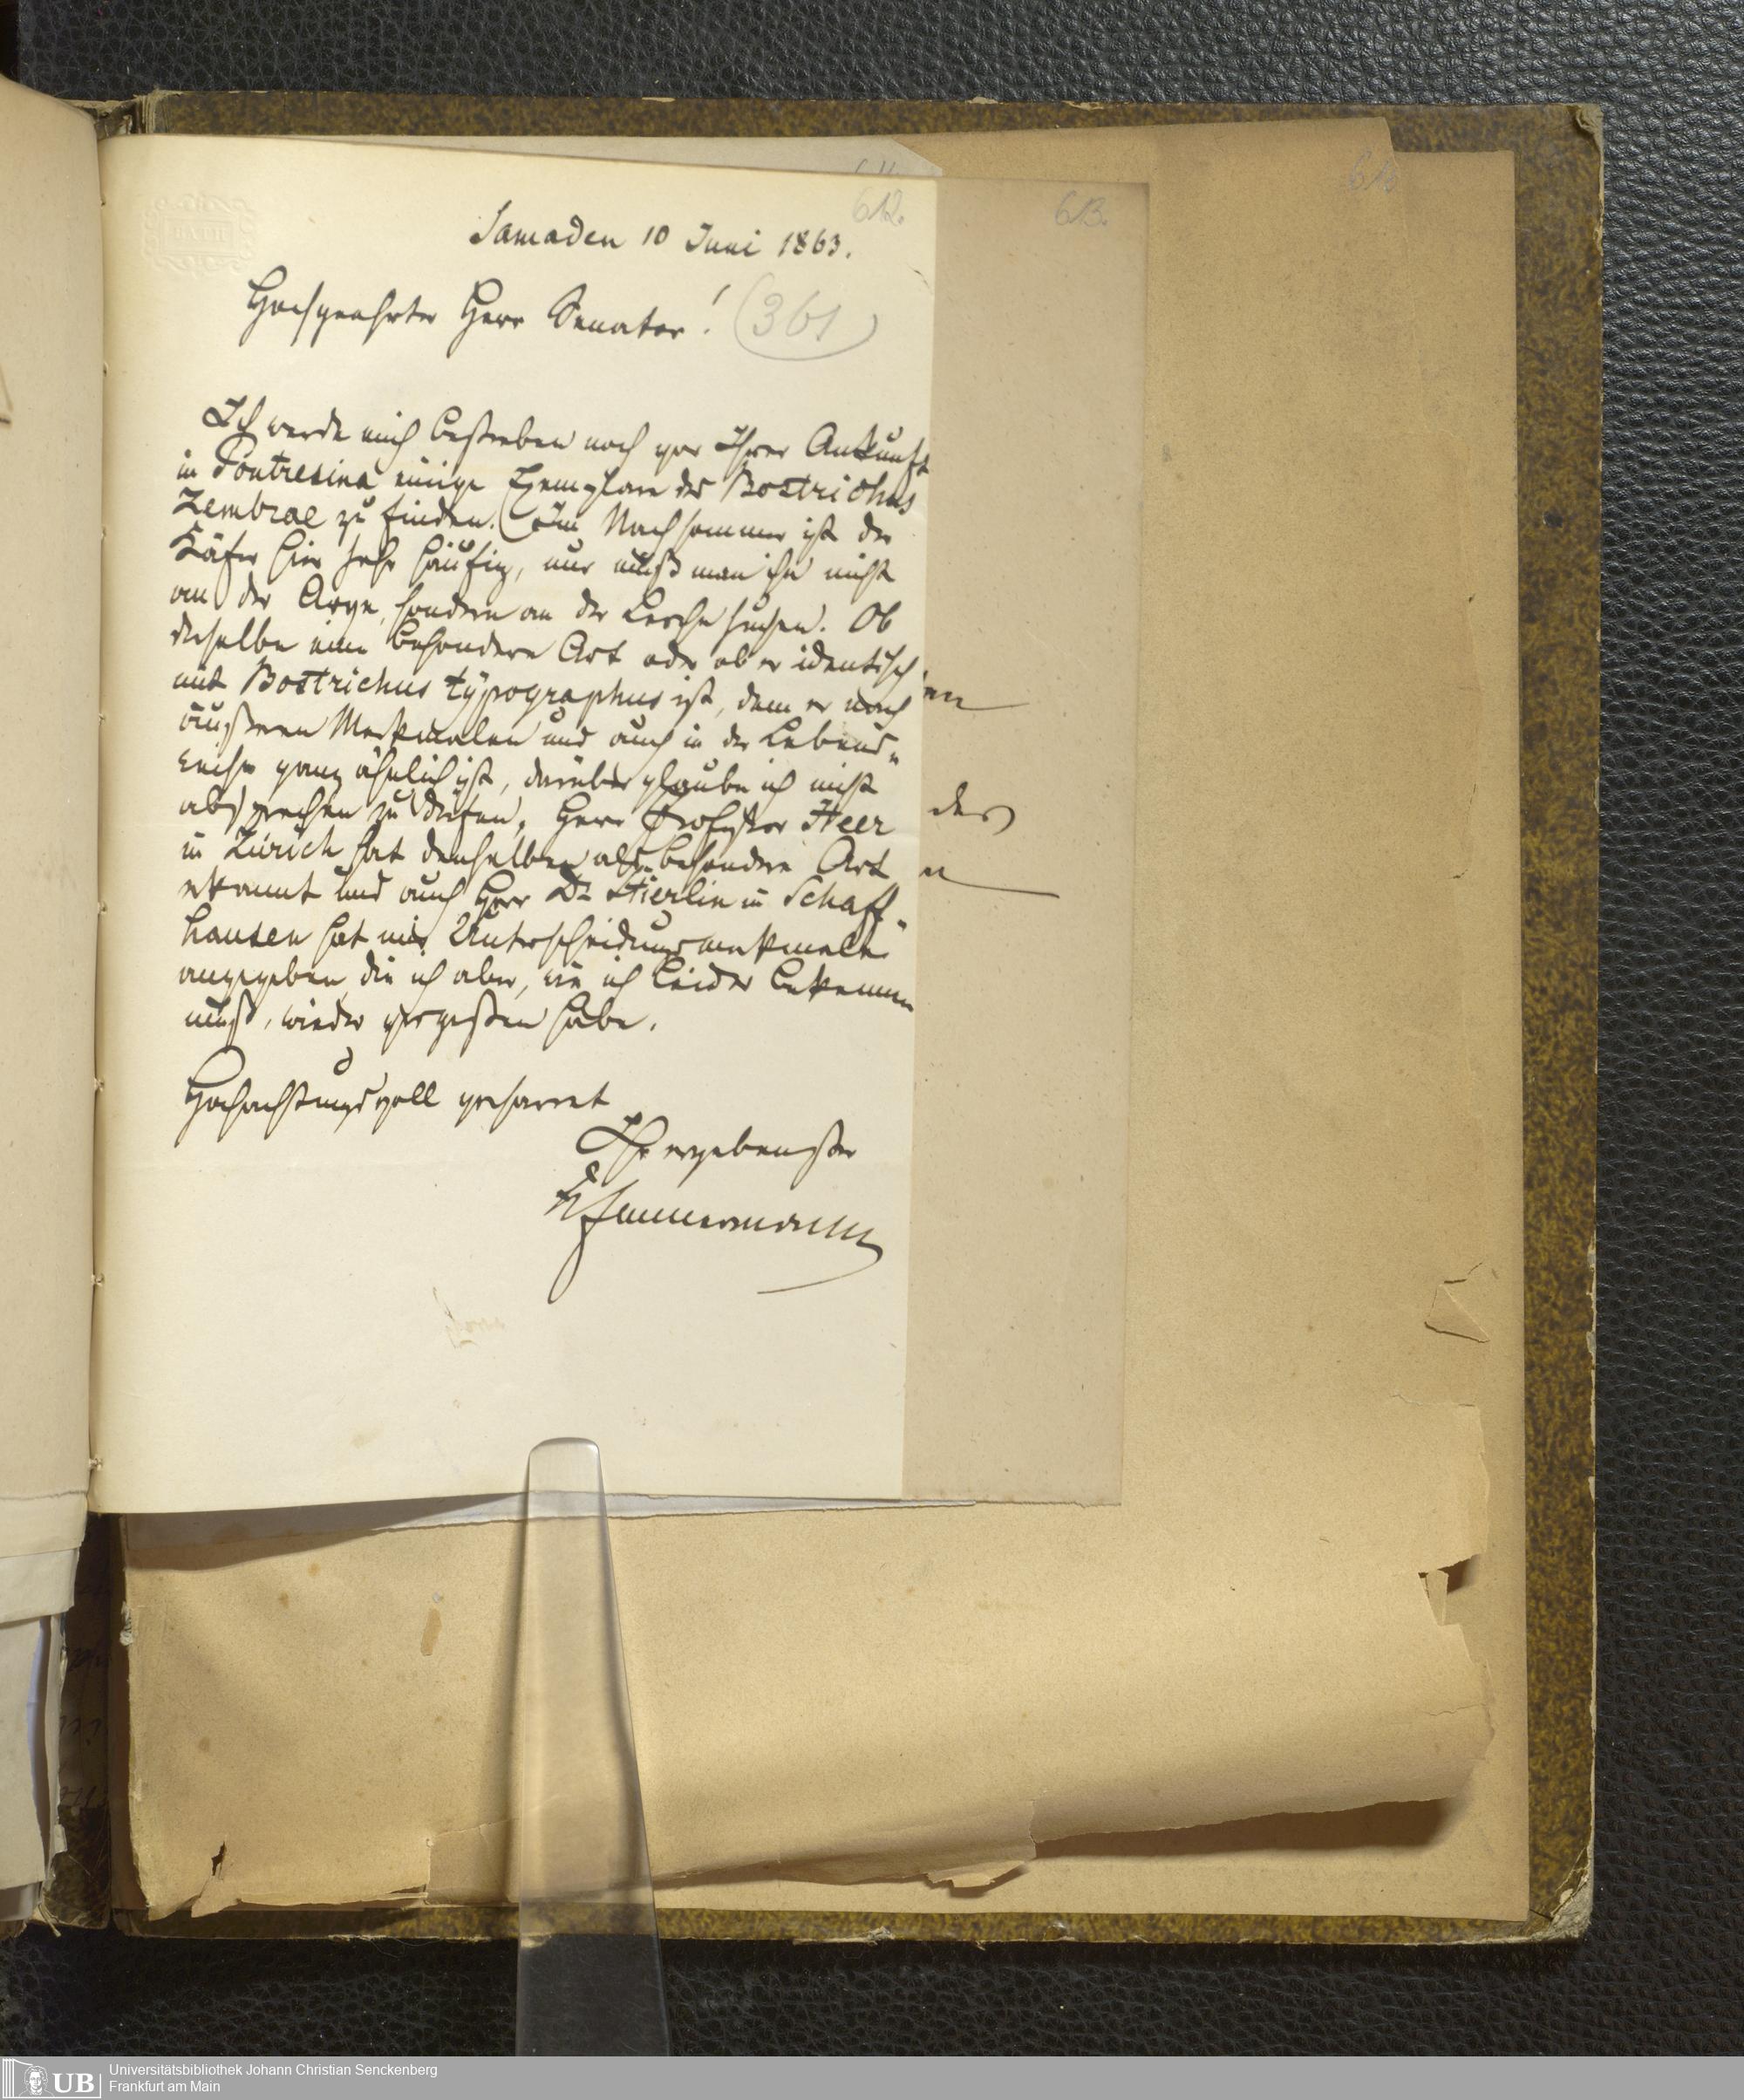 612.
613.
Samaden 10 Juni 1863.
Hochgeehrter Herr Senator!
(361)
Ich werde mich bestreben noch vor Ihrer Ankunft
in Pontresina einige Exemplare des Bostrichus
Zembrae zu finden. Im Nachsommer ist der
Käfer hier sehr häufig, nur muß man ihn nicht
an der Arve, sondern an der Lerche suchen. Ob
derselbe eine besondere Art oder ob er identisch
mit Bostrichus typographus ist, dem er nach
äußeren Merkmalen und auch in der Lebens-
weise ganz ähnlich ist, darüber glaube ich nicht
absprechen zu dürfen. Herr Professor Heer
in Zürich hat denselben als besondere Art
erkannt und auch Herr Dr Stierlin in Schaff-
hausen hat mir Unterscheidungsmerkmale
angegeben die ich aber, wie ich leider bekennen
muß, wieder vergessen habe.
Hochachtungsvoll verharret
Ihr ergebenster
BATH
en
des
n
Universitätsbibliothek Johann Christian Senckenberg
Frankfurt am Main
UB